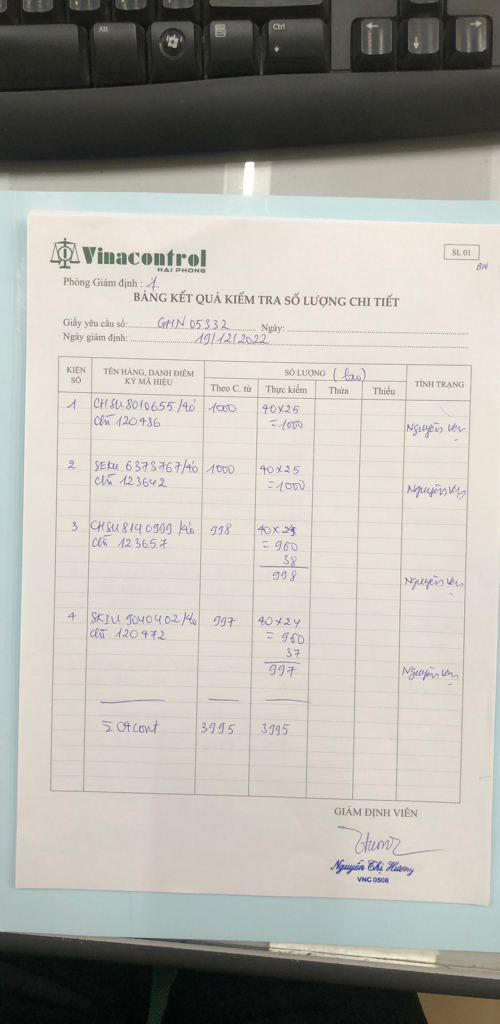 Alt
Ctrl
Vinacontrol
HAI PHONG
SL 01
BN
Phòng Giám định : 1
BẢNG KẾT QUẢ KIỂM TRA SỐ LƯỢNG CHI TIẾT
Giấy yêu cầu số: GHN 05332 Ngày:
Ngày giám định: 19/12/2022
KIỆN SỐ TÊN HÀNG, DANH ĐIỂM KÝ MÃ HIỆU SỐ LƯỢNG (bao) TÌNH TRẠNG
Theo C. từ Thực kiểm Thừa Thiếu
1 CHSU 8010655/40 1000 40x25
chì 120486 =1000 Nguyên vẹn
2 SEKU 6373767/40 1000 40x25
chì 123642 =1000 Nguyên vẹn
3 CHSU 8190999/40 998 40x24
chì 123657 = 960
38
998 Nguyên vẹn
4 SKIU 9040402/40 997 40x24
chì 120472 = 960
37
997 Nguyên vẹn
Σ 04 cont 3995 3995
GIÁM ĐỊNH VIÊN
Nguyễn Thị Hương
VNC 0508